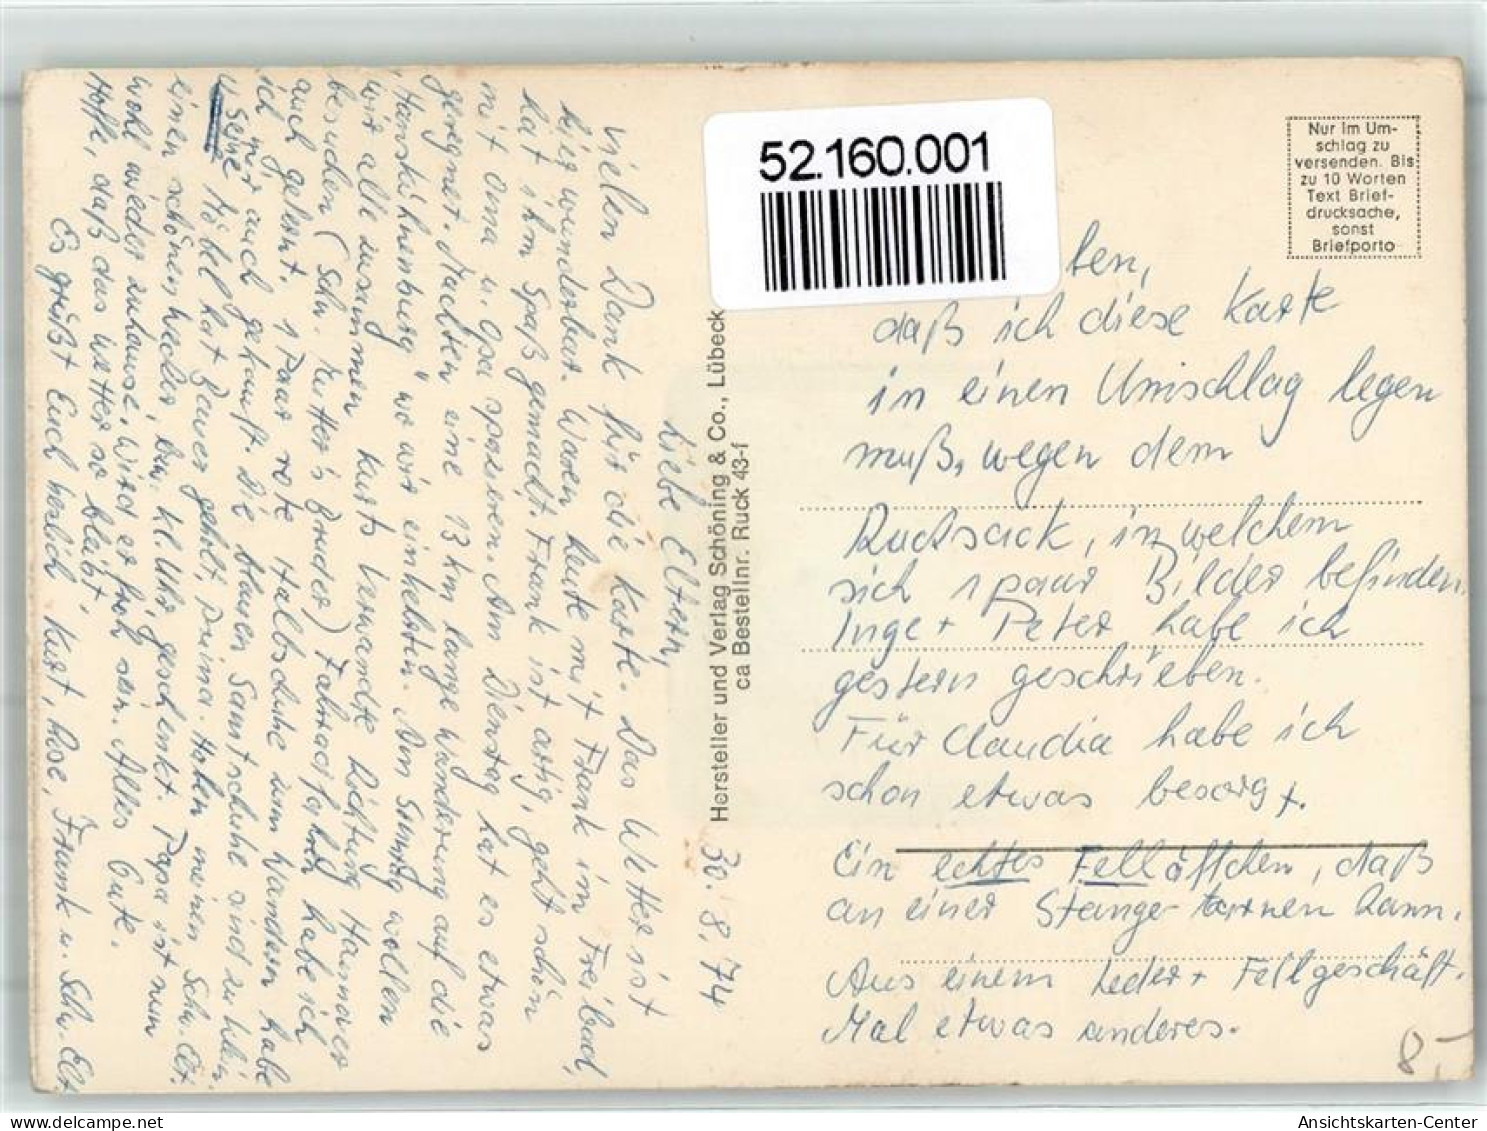 30. 8. 74
Liebe Eltern,
vielen Dank für die Karte. Das Wetter ist
hier wunderbar. Waren heute mit Frank im Freibad,
hat ihm Spaß gemacht. Frank ist artig, geht schön
mit Oma u. Opa spazieren. Am Dienstag hat es etwas
geregnet. Machten eine 13 km lange Wanderung auf die
„Hanskühnenburg" wo wir einkehrten. Am Sonntag wollen
wir alle zusammen Kurts Verwandte Richtung Hannover
besuchen (Schw. Mutter's Bruder) Fahrrad fahren habe ich
auch gelernt. 1 Paar rote Halbschuhe zum Wandern habe
ich mir auch gekauft. Die blauen Samtschuhe sind zu klein
u. seine Möbel hat Bauer geholt, prima. Haben meinen Schw. Elt.
einen schönen Wecker, bzw. kl. Uhr geschenkt. Papa ist nun
wohl wieder zuhause, wird er froh sein. Alles Gute.
Hoffe, daß das Wetter so bleibt.
Es grüßt Euch herzlich Kurt, Rose, Frank u. Schw. Elt.
Hersteller und Verlag Schöning & Co., Lübeck
ca Bestellnr. Ruck 43-f
52.160.001
Nur im Um-
schlag zu
versenden. Bis
zu 10 Worten
Text Brief-
drucksache,
sonst
Briefporto
ben,
daß ich diese Karte
in einen Umschlag legen
muß, wegen dem
Rucksack, in welchem
sich 1 paar Bilder befinden.
Inge + Peter habe ich
gestern geschrieben.
Für Claudia habe ich
schon etwas besorgt.
Ein echtes Felläffchen, daß
an einer Stange turnen kann.
Aus einem Leder + Fellgeschäft.
Mal etwas anderes.
8,-
Ansichtskarten-Center